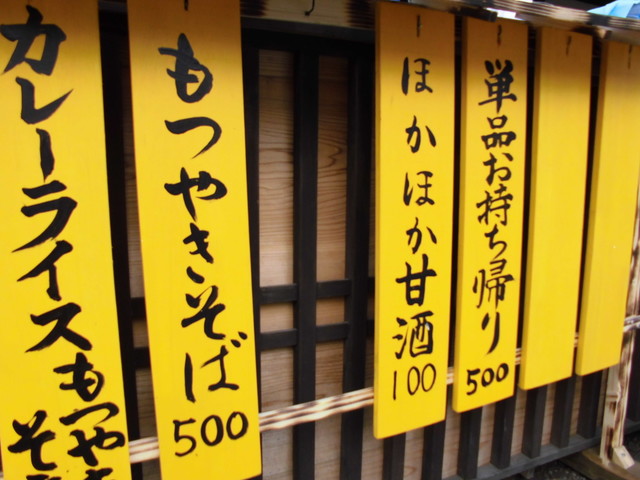 カレーライスもつやき
そ
もつやきそば
500
ほかほか甘酒
100
単品お持ち帰り
500